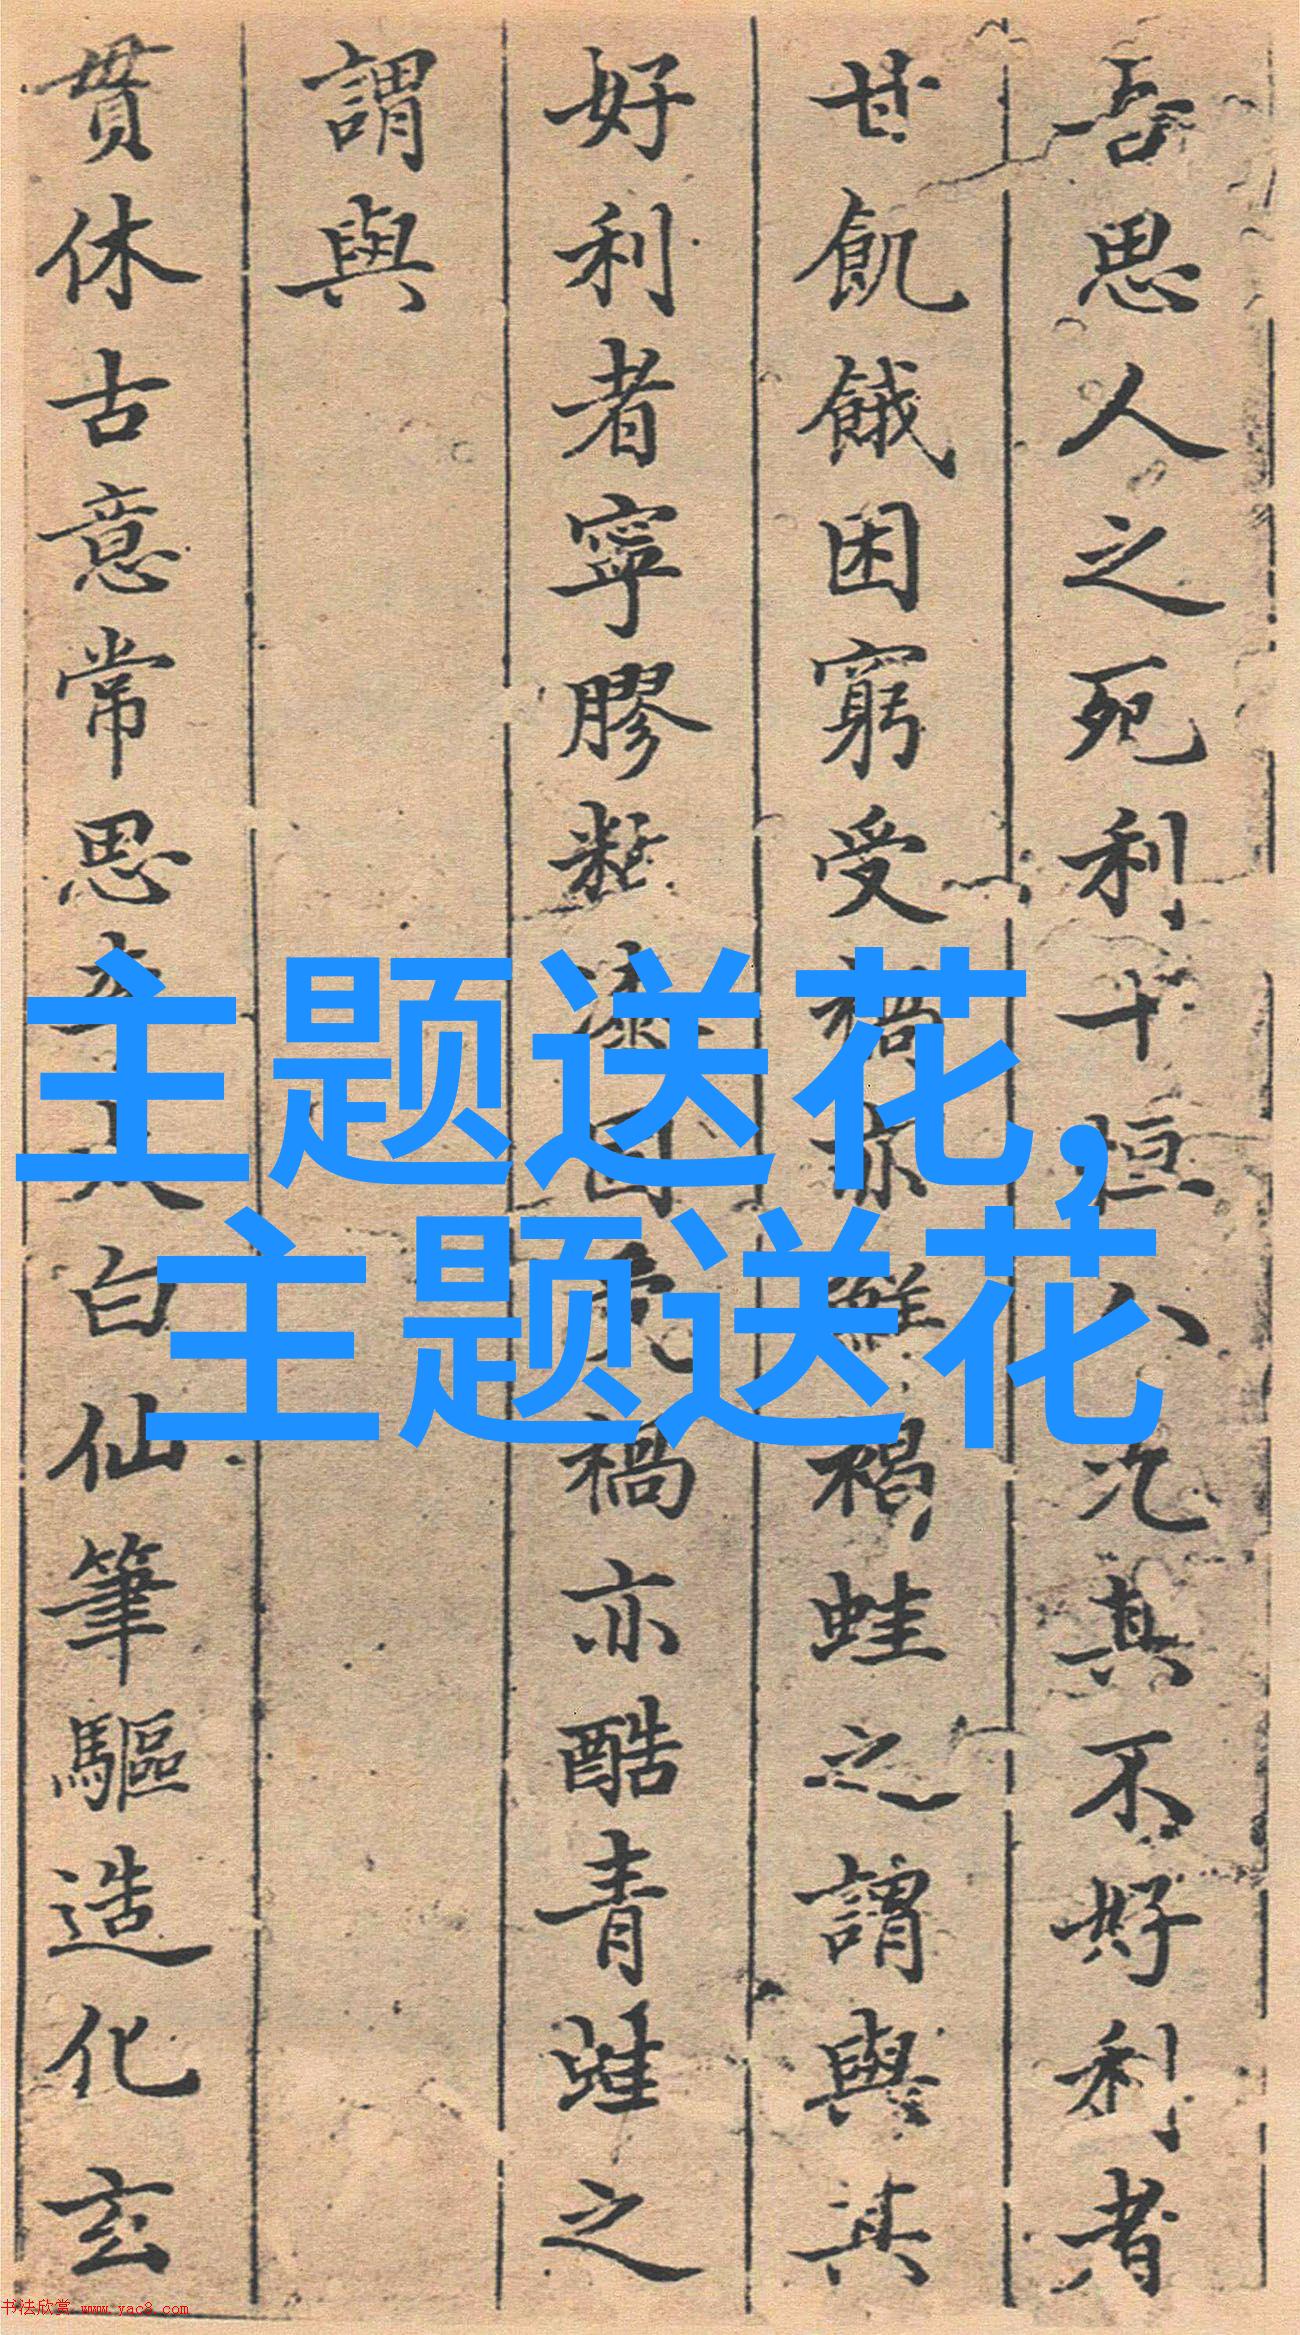 吾思人之死利十恒八其不好利者
甘飢餓困窮受禍亦褐蛙之謂與其
好利者寧膠漆固禍亦酷青蛙之
謂與
貫休古意常思李太白仙筆驅造化玄
主题送花,
主题送花
书法欣赏 www.yac8.com